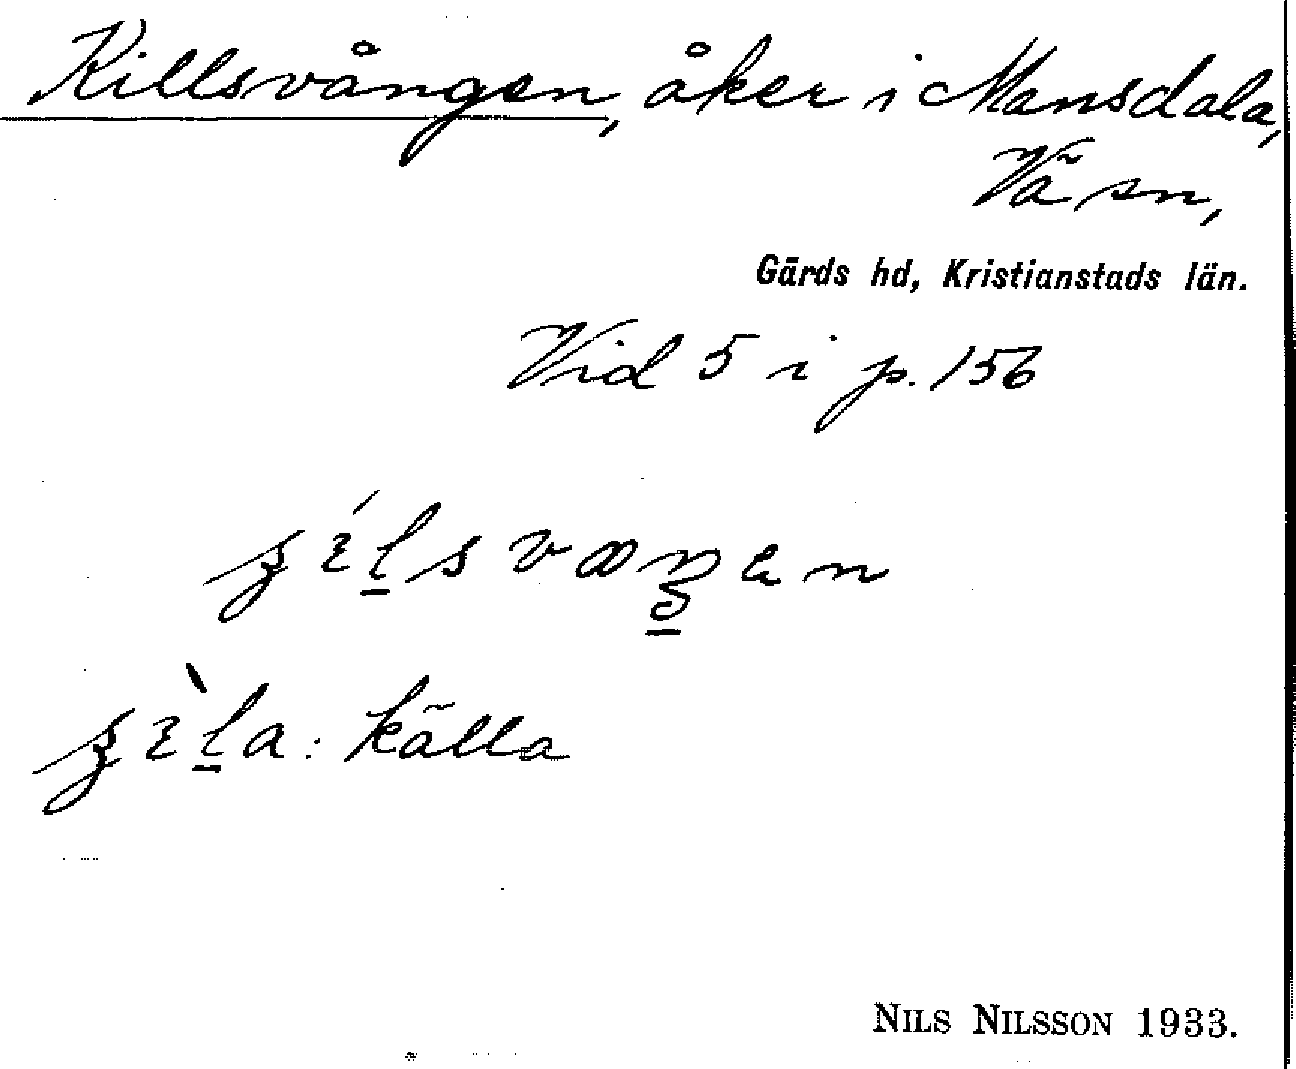 Killsvången, åker i Mansdala,
Vä sn,
Gärds hd, Kristianstads län.
Vid 5 i p. 156
källa
NILS NILSSON 1933.